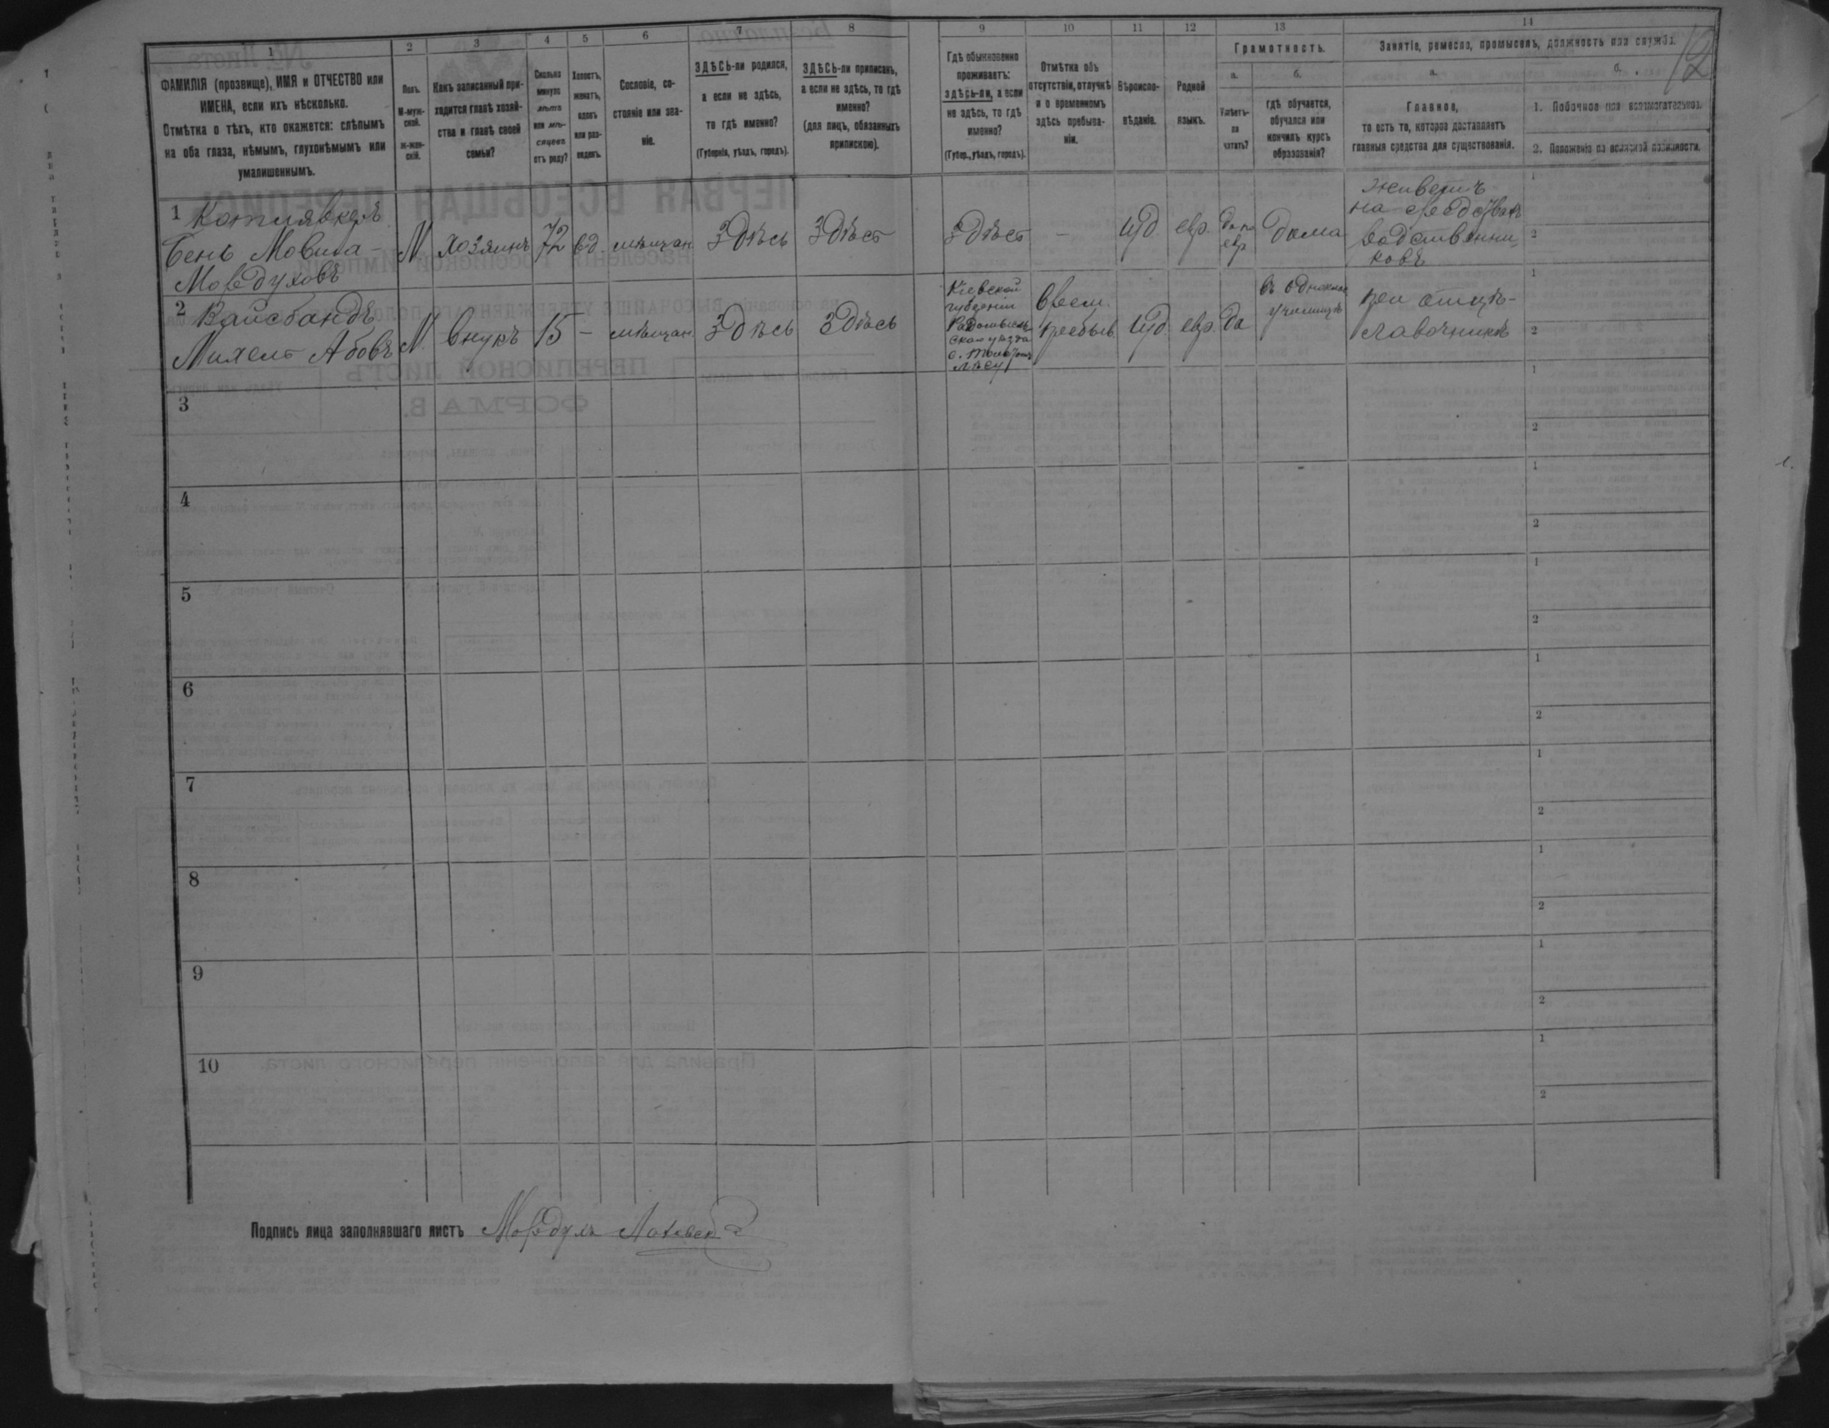 1 2 3 4 5 6 7 8 9 10 11 12 13 14
ФАМИЛІЯ (прозвище), ИМЯ и ОТЧЕСТВО или
ИМЕНА, если ихъ нѣсколько.
Отмѣтка о тѣхъ, кто окажется: слѣпымъ
на оба глаза, нѣмымъ, глухонѣмымъ или
умалишеннымъ.
Полъ.
М-муж-
ской.
Ж-жен-
скій.
Какъ записанный при-
ходится главѣ хозяй-
ства и главѣ своей
семьи?
Сколько
минуло
лѣтъ
или мѣ-
сяцевъ
отъ роду?
Холостъ,
женатъ,
вдовъ
или раз-
веденъ.
Сословіе, со-
стояніе или зва-
ніе.
ЗДѢСЬ-ли родился,
а если не здѣсь,
то гдѣ именно?
(Губернія, уѣздъ, городъ).
ЗДѢСЬ-ли приписанъ,
а если не здѣсь, то гдѣ
именно?
(для лицъ, обязанныхъ
припискою).
Гдѣ обыкновенно
проживаетъ:
здѣсь-ли, а если
не здѣсь, то гдѣ
именно?
(Губер., уѣздъ, городъ).
Отмѣтка объ
отсутствіи, отлучкѣ
и о временномъ
здѣсь пребыва-
ніи.
Вѣроиспо-
вѣданіе.
Родной
языкъ.
Грамотность.
а. б.
Умѣетъ-
ли
читать?
гдѣ обучается,
обучался или
кончилъ курсъ
образованія?
Занятіе, ремесло, промыселъ, должность или служба.
а. б.
Главное,
то есть то, которое доставляетъ
главныя средства для существованія.
1. Побочное или вспомогательное.
2. Положеніе по воинской повинности.
12
1
Бень Мовша
Мордуховъ
М хозяинъ 72 вд мѣщан Здѣсь Здѣсь
Здѣсь - иуд евр да по
евр
дома
живетъ
на средства
родственни-
ковъ
1
2
2 Вайсбандъ
Михель Абовъ
М внукъ 15 - мѣщан Здѣсь Здѣсь
Кіевской
губерніи
Радомысль-
ского уѣзда
Врем.
пребыв иуд евр. да
въ
училищѣ
при отцѣ-
лавочникѣ
1
2
3
1
2
4
1
2
5
1
2
6
1
2
7
1
2
8
1
2
9
1
2
10
1
2
Подпись лица заполнявшаго листъ Мордухъ